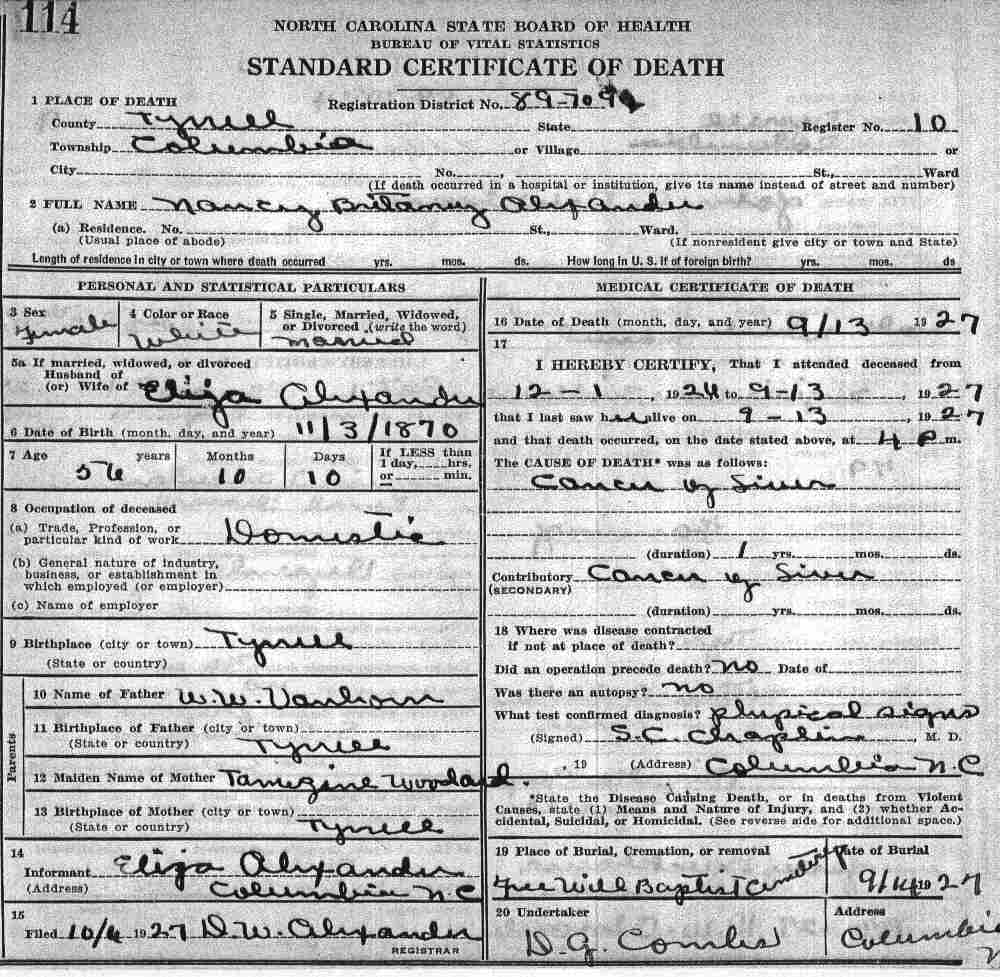 114
NORTH CAROLINA STATE BOARD OF HEALTH
BUREAU OF VITAL STATISTICS
STANDARD CERTIFICATE OF DEATH
1 PLACE OF DEATH Registration District No. 89-709
County Tyrrell State Register No. 10
Township Columbia or Village or
City No. , St., Ward
(If death occurred in a hospital or institution, give its name instead of street and number)
2 FULL NAME Nancy Britaney Alexander
(a) Residence. No. St., Ward.
(Usual place of abode) (If nonresident give city or town and State)
Length of residence in city or town where death occurred yrs. mos. ds. How long in U. S. if of foreign birth? yrs. mos. ds
PERSONAL AND STATISTICAL PARTICULARS
3 Sex 4 Color or Race 5 Single, Married, Widowed,
or Divorced (write the word)
Female White Married
5a If married, widowed, or divorced
Husband of
(or) Wife of Eliza Alexander
6 Date of Birth (month, day, and year) 11/3/1870
7 Age years Months Days If LESS than
1 day, hrs.
56 10 10 or min.
8 Occupation of deceased
(a) Trade, Profession, or
particular kind of work Domestic
(b) General nature of industry,
business, or establishment in
which employed (or employer)
(c) Name of employer
9 Birthplace (city or town) Tyrrell
(State or country)
Parents
10 Name of Father W.W. Vanhorn
11 Birthplace of Father (city or town)
(State or country) Tyrrell
12 Maiden Name of Mother Tamezine Woodard.
13 Birthplace of Mother (city or town)
(State or country) Tyrrell
14
Informant Eliza Alexander
(Address) Columbia N.C
15
Filed 10/4 1927 D.W. Alexander
REGISTRAR
MEDICAL CERTIFICATE OF DEATH
16 Date of Death (month, day, and year) 9/13 1927
17
I HEREBY CERTIFY, That I attended deceased from
12-1, 1924 to 9-13, 1927
that I last saw her alive on 9-13, 1927
and that death occurred, on the date stated above, at 4 P m.
The CAUSE OF DEATH* was as follows:
Cancer of Liver
(duration) 1 yrs. mos. ds.
Contributory Cancer of Liver
(SECONDARY)
(duration) yrs. mos. ds.
18 Where was disease contracted
if not at place of death?
Did an operation precede death? No Date of
Was there an autopsy? No
What test confirmed diagnosis? Physical signs
(Signed) S.C. Chaplin, M. D.
, 19 (Address) Columbia N.C
*State the Disease Causing Death, or in deaths from Violent
Causes, state (1) Means and Nature of Injury, and (2) whether Ac-
cidental, Suicidal, or Homicidal. (See reverse side for additional space.)
19 Place of Burial, Cremation, or removal Date of Burial
Free Will Baptist Cemetery 9/14 1927
20 Undertaker Address
D.G. Combs Columbia